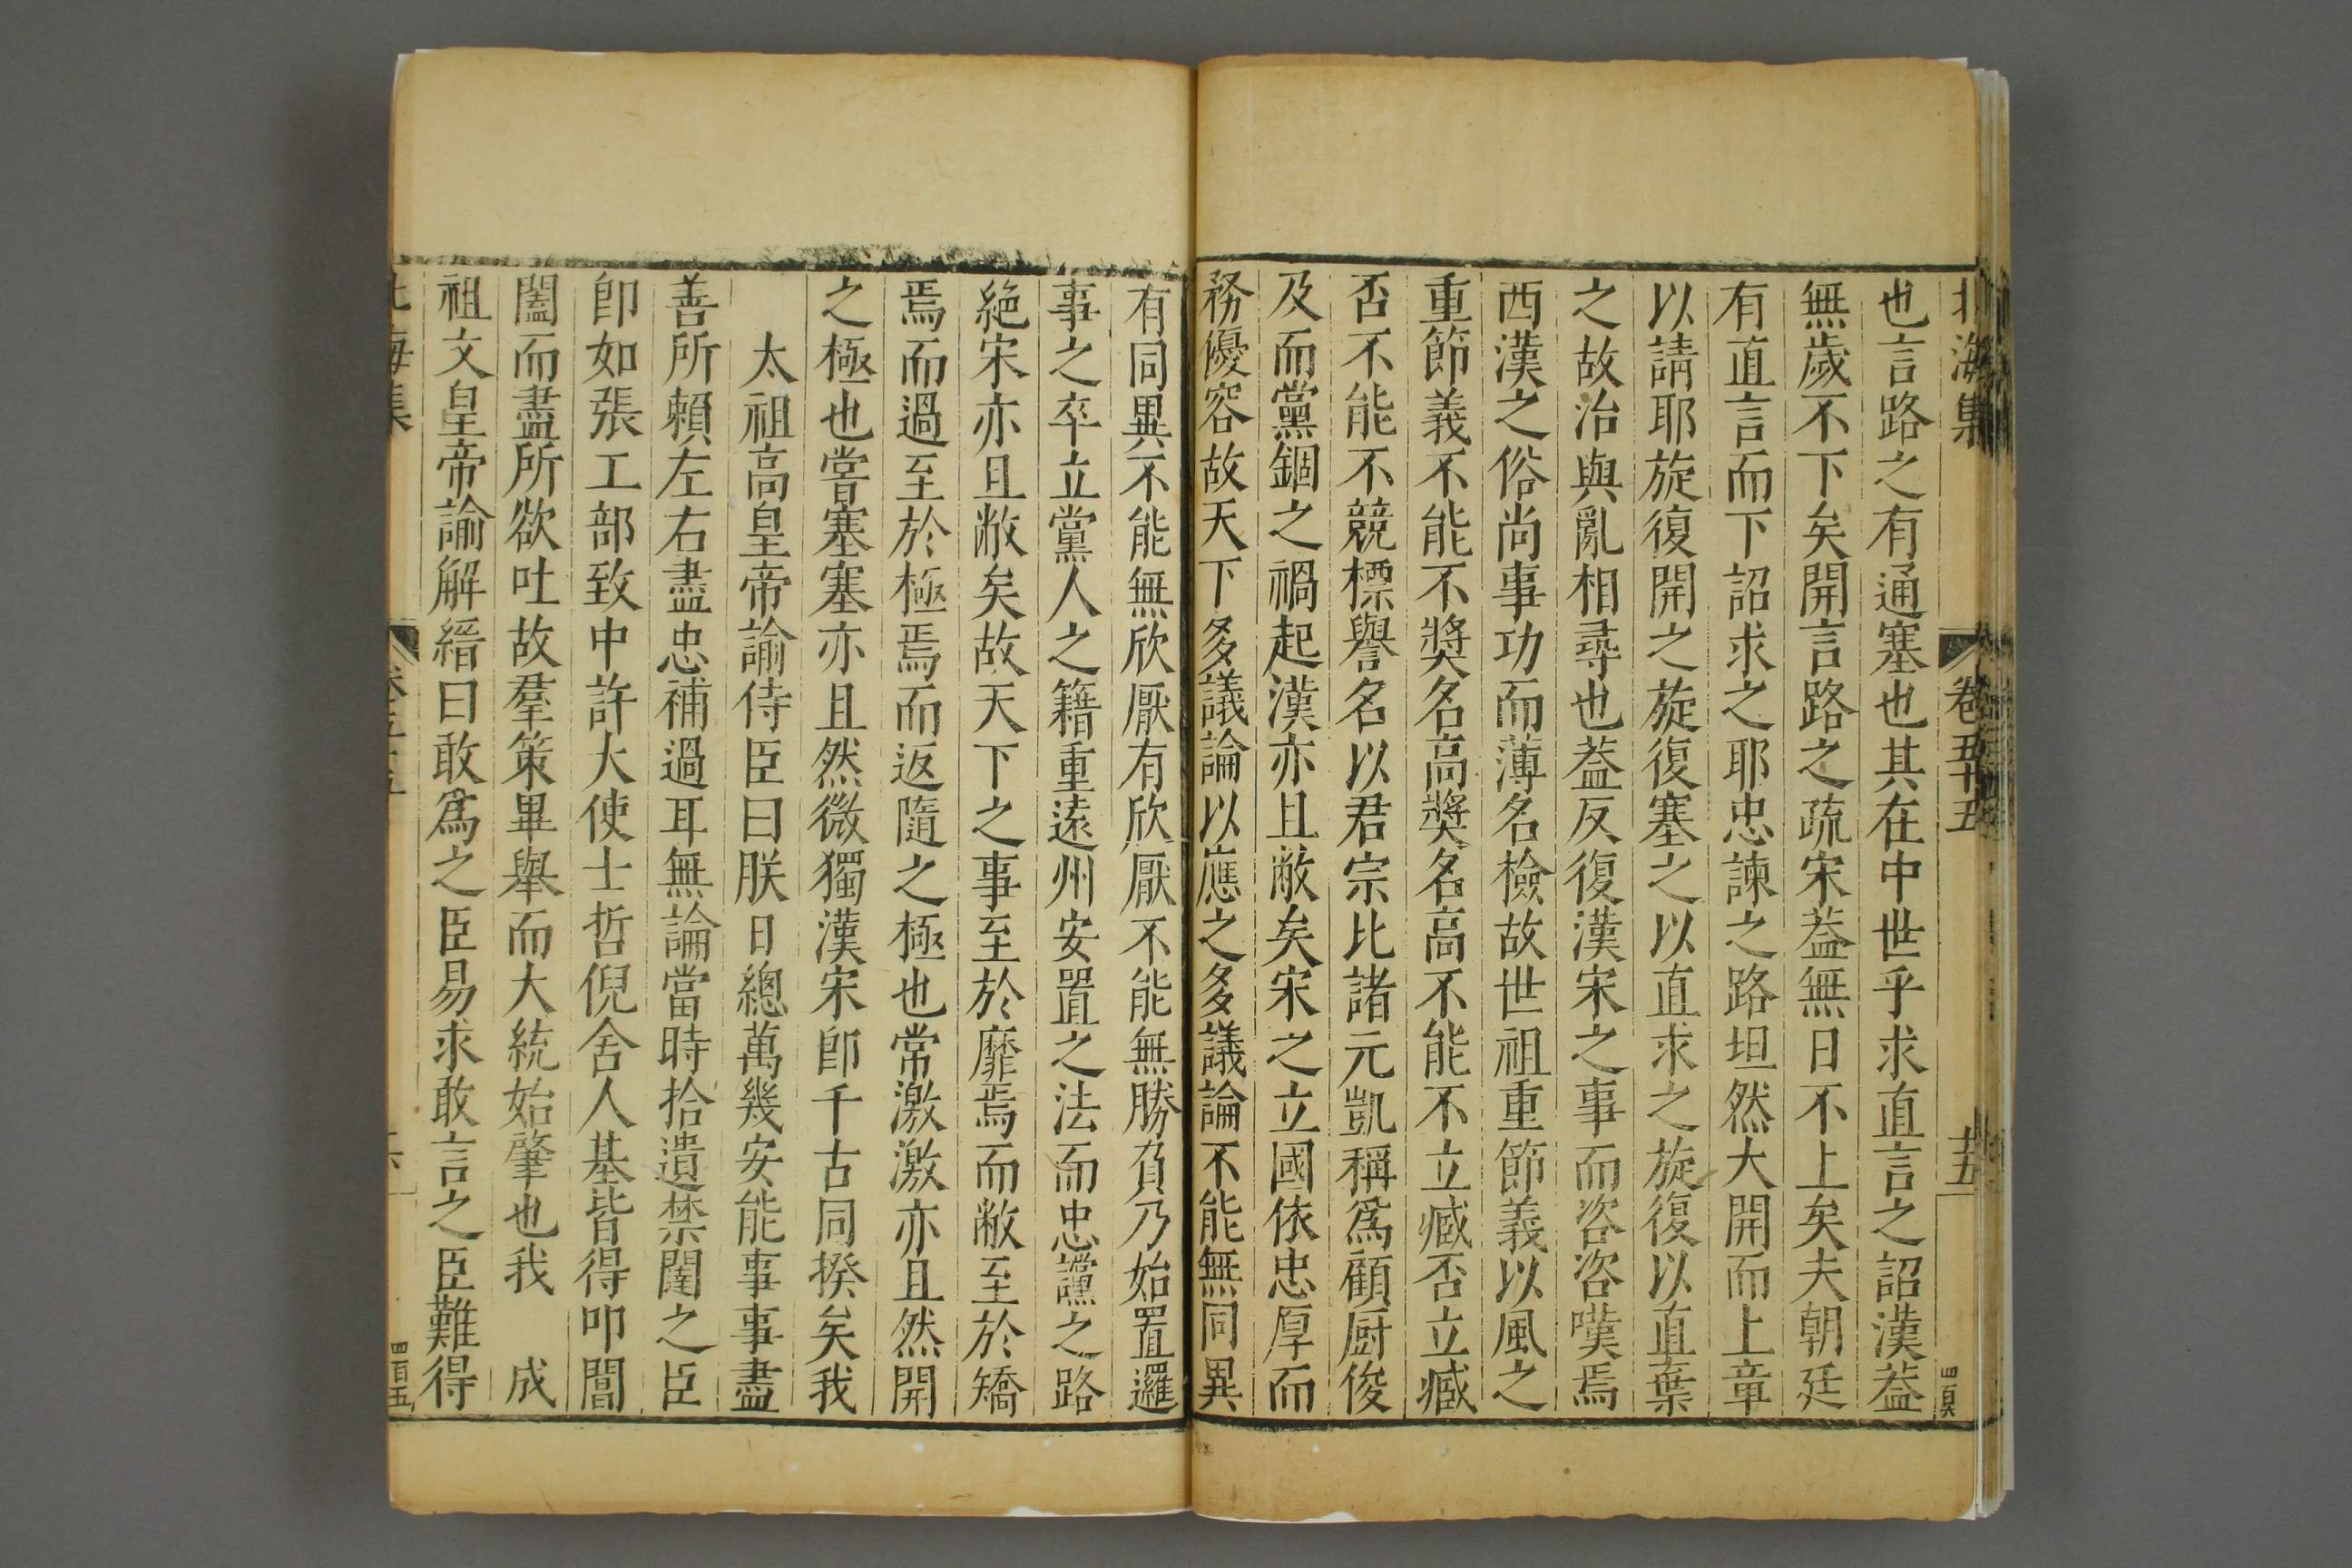 北海集 卷五十五 十五 四百六
也言路之有通塞也其在中世乎求直言之詔漢葢
無歲不下矣開言路之疏宋葢無日不上矣夫朝廷
有直言而下詔求之耶忠諫之路坦然大開而上章
以請耶旋復開之旋復塞之以直求之旋復以直棄
之故治與亂相尋也葢反復漢宋之事而咨咨嘆焉
西漢之俗尚事功而薄名檢故世祖重節義以風之
重節義不能不獎名高獎名高不能不立臧否立臧
否不能不競標譽名以君宗比諸元凱稱爲顧厨俊
及而黨錮之禍起漢亦且敝矣宋之立國依忠厚而
務優容故天下多議論以應之多議論不能無同異
有同異不能無欣厭有欣厭不能無勝負乃始置邏
事之卒立黨人之籍重遠州安置之法而忠讜之路
絶宋亦且敝矣故天下之事至於靡焉而敝至於矯
焉而過至於極焉而返隨之極也常激激亦且然開
之極也嘗塞塞亦且然微獨漢宋卽千古同揆矣我
太祖高皇帝諭侍臣曰朕日總萬幾安能事事盡
善所賴左右盡忠補過耳無論當時拾遺禁闥之臣
卽如張工部致中許大使士哲倪舍人基皆得叩閽
闔而盡所欲吐故羣策畢舉而大統始肇也我 成
祖文皇帝諭解縉曰敢爲之臣易求敢言之臣難得
北海集 卷五十五 四百五